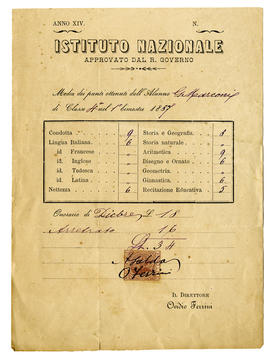 ANNO XIV. N.
ISTITUTO NAZIONALE
APPROVATO DAL R. GOVERNO
Media dei punti ottenuti dell'Alunno G. Marconi
di Classe 4ª nel 1° bimestre 1887
Condotta 9 Storia e Geografia. 8
Lingua Italiana. 6 Storia naturale
id Francese Aritmetica 9
id. Inglese Disegno e Ornato 6
id. Tedesca Geometria.
id. Latina Ginnastica. 6
Nettezza 6 Recitazione Educativa 5
Onorario di Dicbre £ 18
Arretrato 16
34
Saldo
O Ferrini
IL DIRETTORE
Ovidio Ferrini